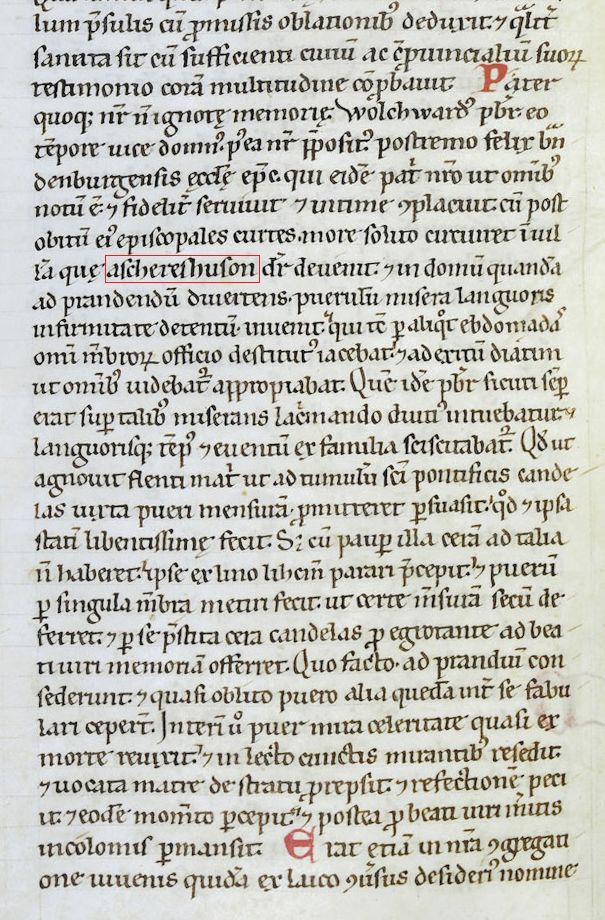 lum p̄sulis cū ꝓmissis oblationib⁹ deduxit. ⁊ qͣlit̄
sanata sit cū sufficienti ciuiū ac cōp̄uincialiū suoꝝ
testimonio corā multitudine cōꝓbauit. Pater
quoq; nr̄ n̄ ignotę memorię. Wolchward⁹ pb̄r eo
tēpore uice domn⁹. p⁹ea nr̄ p̄posit⁹. postremo felix bn̄
denburgensis ęccłę ep̄c. qui eidē pat̄ nr̄o ut omīb⁹
notū ē. ⁊ fidelit̄ seruiuit ⁊ intime ꝯplacuit. cū post
obitū ei⁹ episcopales curtes. more solito circuiret ī uil
lā quę ascheres huson dr̄ deuenit. ⁊ in domū quandā
ad prandendū diuertens. puerulū misera languoris
infirmitate detentū inuenit. qui tē ꝑ aliqͦt ebdomadaʒ
omī mēbroꝝ officio destitut⁹ iacebat. ⁊ ad exitū diatim
ut omīb⁹ uidebat᷑ appropiabat. Quē idē pb̄r sicuti sēꝑ
erat suꝑ talib⁹ miserans lac̄mando diuti⁹ intuebatur. ⁊
languorisq; tēp⁹ ⁊ euentū ex familia sciscitabat᷑. Qđ ut
agnouit flenti mat̄ ut ad tumulū sc̄i pontificis cande
las iuxta pueri mensurā ꝓmitteret ꝑsuasit. qͦd ⁊ ipsa
statī libentissime fecit. Sʒ cū pauꝑ illa cerā ad talia
n̄ haberet. ipse ex lino lihcinū parari p̄cepit. ⁊ puerū
ꝑ singula mēbra metiri fecit. ut certe mēsurā secū de
ferret. ⁊ ꝑ se p̄stita cera candelas ꝓ egrotante ad bea
ti uiri memoriā offerret. Quo facto. ad prandiū con
sederunt. ⁊ quasi oblito puero alia quedā int̄ se fabu
lari ceper̄t. Interī u͛o puer mira celeritate quasi ex
morte reuixit. ⁊ in lecto cunctis mirantib⁹ resedit.
⁊ uocata matre de stratu prepsit. ⁊ refectionē peci
it. ⁊ eodē momēto ꝑcepit. ⁊ postea ꝓ beati uiri m̄itis
incolomis ꝑmansit. Erat etiā in nr̄a ꝯgregati
one iuuenis quidā ex laico ꝯuersus desideri⁹ nomine